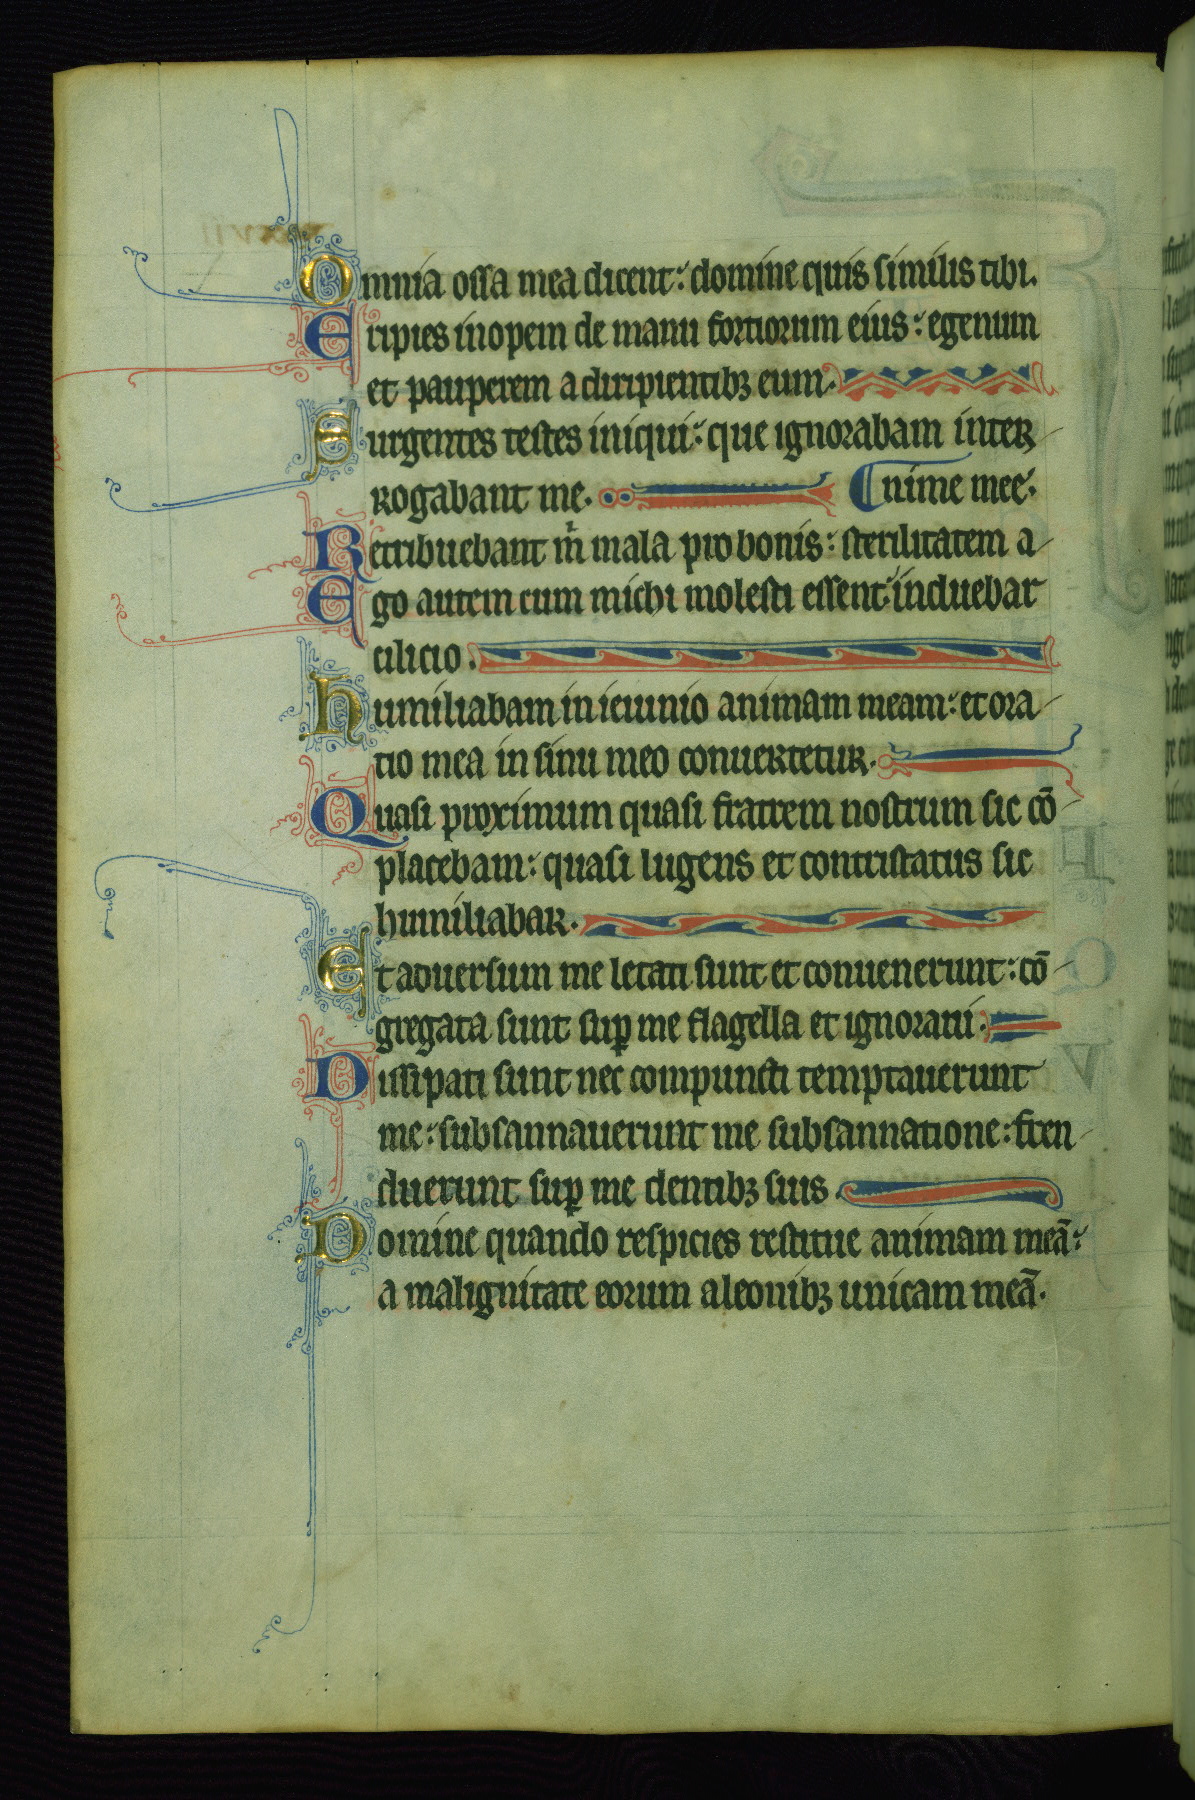 Omnia ossa mea dicent: domine quis similis tibi.
Eripies inopem de manu fortiorum eius: egenum
et pauperem a diripientibꝫ eum.
Surgentes testes iniqui: que ignorabam inter
rogabant me. nime mee.
Retribuebant m̃ mala pro bonis: sterilitatem a
Ego autem cum michi molesti essent: induebar
cilicio.
Humiliabam in ieiunio animam meam: et ora
tio mea in sinu meo conuertetur.
Quasi proximum quasi fratrem nostrum sic cō
placebam: quasi lugens et contristatus sic
humiliabar.
Et aduersum me letati sunt et conuenerunt: cō
gregata sunt suꝑ me flagella et ignoraui.
Dissipati sunt nec compuncti temptauerunt
me: subsannauerunt me subsannatione: fren
duerunt suꝑ me dentibꝫ suis
Domine quando respicies restitue animam meā:
a malignitate eorum a leonibꝫ unicam meā.